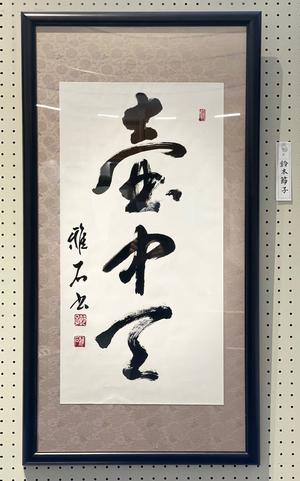 壷中天
雅石書
鈴木節子